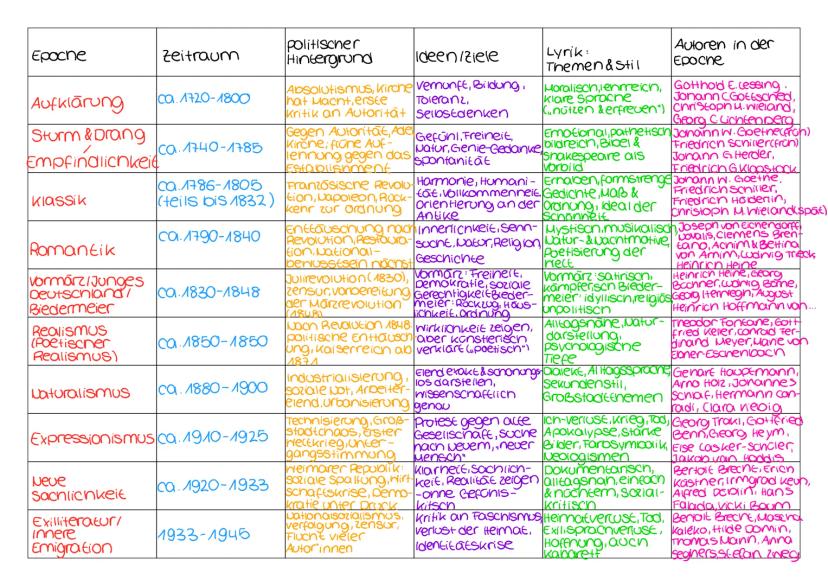 Epoche
Zeitraum
politischer
Hintergrund
Ideen/Ziele
Lyrik:
Themen & Stil
Autoren in der
Epoche
Aufklärung
ca. 1720-1800
Absolutismus, Kirche
hat Macht, erste
Kritik an Autorität
Vernunft, Bildung,
Toleranz,
Selbstdenken
Moralisch, lehrreich,
klare Sprache
("nützen & erfreuen")
Gotthold E. Lessing,
Johann C. Gottsched,
Christoph M. Wieland,
Georg C. Lichtenberg
Sturm & Drang
/
Empfindlichkeit
ca. 1740-1785
Gegen Autorität, Adel
Kirche, frühe Auf-
lehnung gegen das
Establishment
Gefühl, Freiheit,
Natur, Genie-Gedanke,
Spontanität
Emotional, pathetisch,
bildreich, Bibel &
Shakespeare als
Vorbild
Johann W. Goethe(früh)
Friedrich Schiller(früh)
Johann G. Herder,
Friedrich G. Klopstock
Klassik
ca. 1786-1805
(teils bis 1832)
Französische Revolu-
tion, Napoleon, Rück-
kehr zur Ordnung
Harmonie, Humani-
tät, Vollkommenheit,
Orientierung an der
Antike
Erhaben, formstrenge
Gedichte, Maß &
Ordnung, Ideal der
Schönheit
Johann W. Goethe,
Friedrich Schiller,
Friedrich Hölderlin,
Christoph M. Wieland(spät)
Romantik
ca. 1790-1840
Enttäuschung nach
Revolution, Restaura-
tion, National-
bewusstsein wächst
Innerlichkeit, Sehn-
sucht, Natur, Religion,
Geschichte
Mystisch, musikalisch,
Natur- & Nachtmotive,
Poetisierung der
Welt
Joseph von Eichendorff,
Novalis, Clemens Bren-
tano, Achim & Bettina
von Arnim, Ludwig Tieck,
Heinrich Heine
Vormärz/Junges
Deutschland/
Biedermeier
ca. 1830-1848
Julirevolution (1830),
Zensur, Vorbereitung
der Märzrevolution
(1848)
Vormärz: Freiheit,
Demokratie, soziale
Gerechtigkeit Bieder-
meier: Rückzug, Häus-
lichkeit, Ordnung
Vormärz: satirisch,
kämpferisch Bieder-
meier: idyllisch, religiös,
unpolitisch
Heinrich Heine, Georg
Büchner, Ludwig Börne,
Georg Herwegh, August
Heinrich Hoffmann von...
Realismus
(Poetischer
Realismus)
ca. 1850-1850
Nach Revolution 1848:
politische Enttäusch
ung, Kaiserreich ab
1871
Wirklichkeit zeigen,
aber künstlerisch
verklärt ("poetisch")
Alltagsnähe, Natur-
darstellung,
psychologische
Tiefe
Theodor Fontane, Gott-
fried Keller, Conrad Fer-
dinand Meyer, Marie von
Ebner-Eschenbach
Naturalismus
ca. 1880-1900
Industrialisierung,
soziale Not, Arbeiter-
elend, Urbanisierung
Elend exakt & schonungs-
los darstellen,
wissenschaftlich
genau
Dialekt, Alltagssprache,
Sekundenstil,
Großstadtthemen
Gerhart Hauptmann,
Arno Holz, Johannes
Schlaf, Hermann Con-
radi, Clara Viebig
Expressionismus
ca. 1910-1925
Technisierung, Groß-
stadtchaos, erster
Weltkrieg, Unter-
gangsstimmung
Protest gegen alte
Gesellschaft, Suche
nach Neuem, „neuer
Mensch"
Ich-Verlust, Krieg, Tod,
Apokalypse, starke
Bilder, Farbsymbolik,
Neologismen
Georg Trakl, Gottfried
Benn, Georg Heym,
Else Lasker-Schüler,
Jakob van Hoddis
Neue
Sachlichkeit
ca. 1920-1933
Weimarer Republik:
soziale Spaltung, Wirt-
schaftskrise, Demo-
kratie unter Druck
Klarheit, Sachlich-
keit, Realität zeigen
-ohne Gefühls-
kitsch
Dokumentarisch,
alltagsnah, einfach
& nüchtern, sozial-
kritisch
Bertolt Brecht, Erich
Kästner, Irmgard Keun,
Alfred Döblin, Hans
Fallada, Vicki Baum
Exilliteratur/
Innere
Emigration
1933-1945
Nationalsozialismus,
Verfolgung, Zensur,
Flucht vieler
Autor:innen
Kritik an Faschismus,
Verlust der Heimat,
Identitätskrise
Heimatverlust, Tod,
Exil, Sprachverlust,
Hoffnung, auch
Kabarett
Bertolt Brecht, Mascha
Kaléko, Hilde Domin,
Thomas Mann, Anna
Seghers, Stefan Zweig